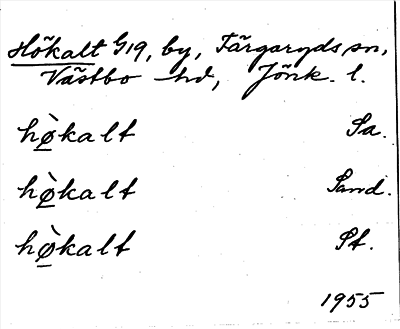 Hökalt G19, by, Färgaryds sn,
Västbo hd, Jönk. l.
hø̠̀kalt Sa.
hø̠̀kalt Sand.
hø̠̀kalt St.
1955